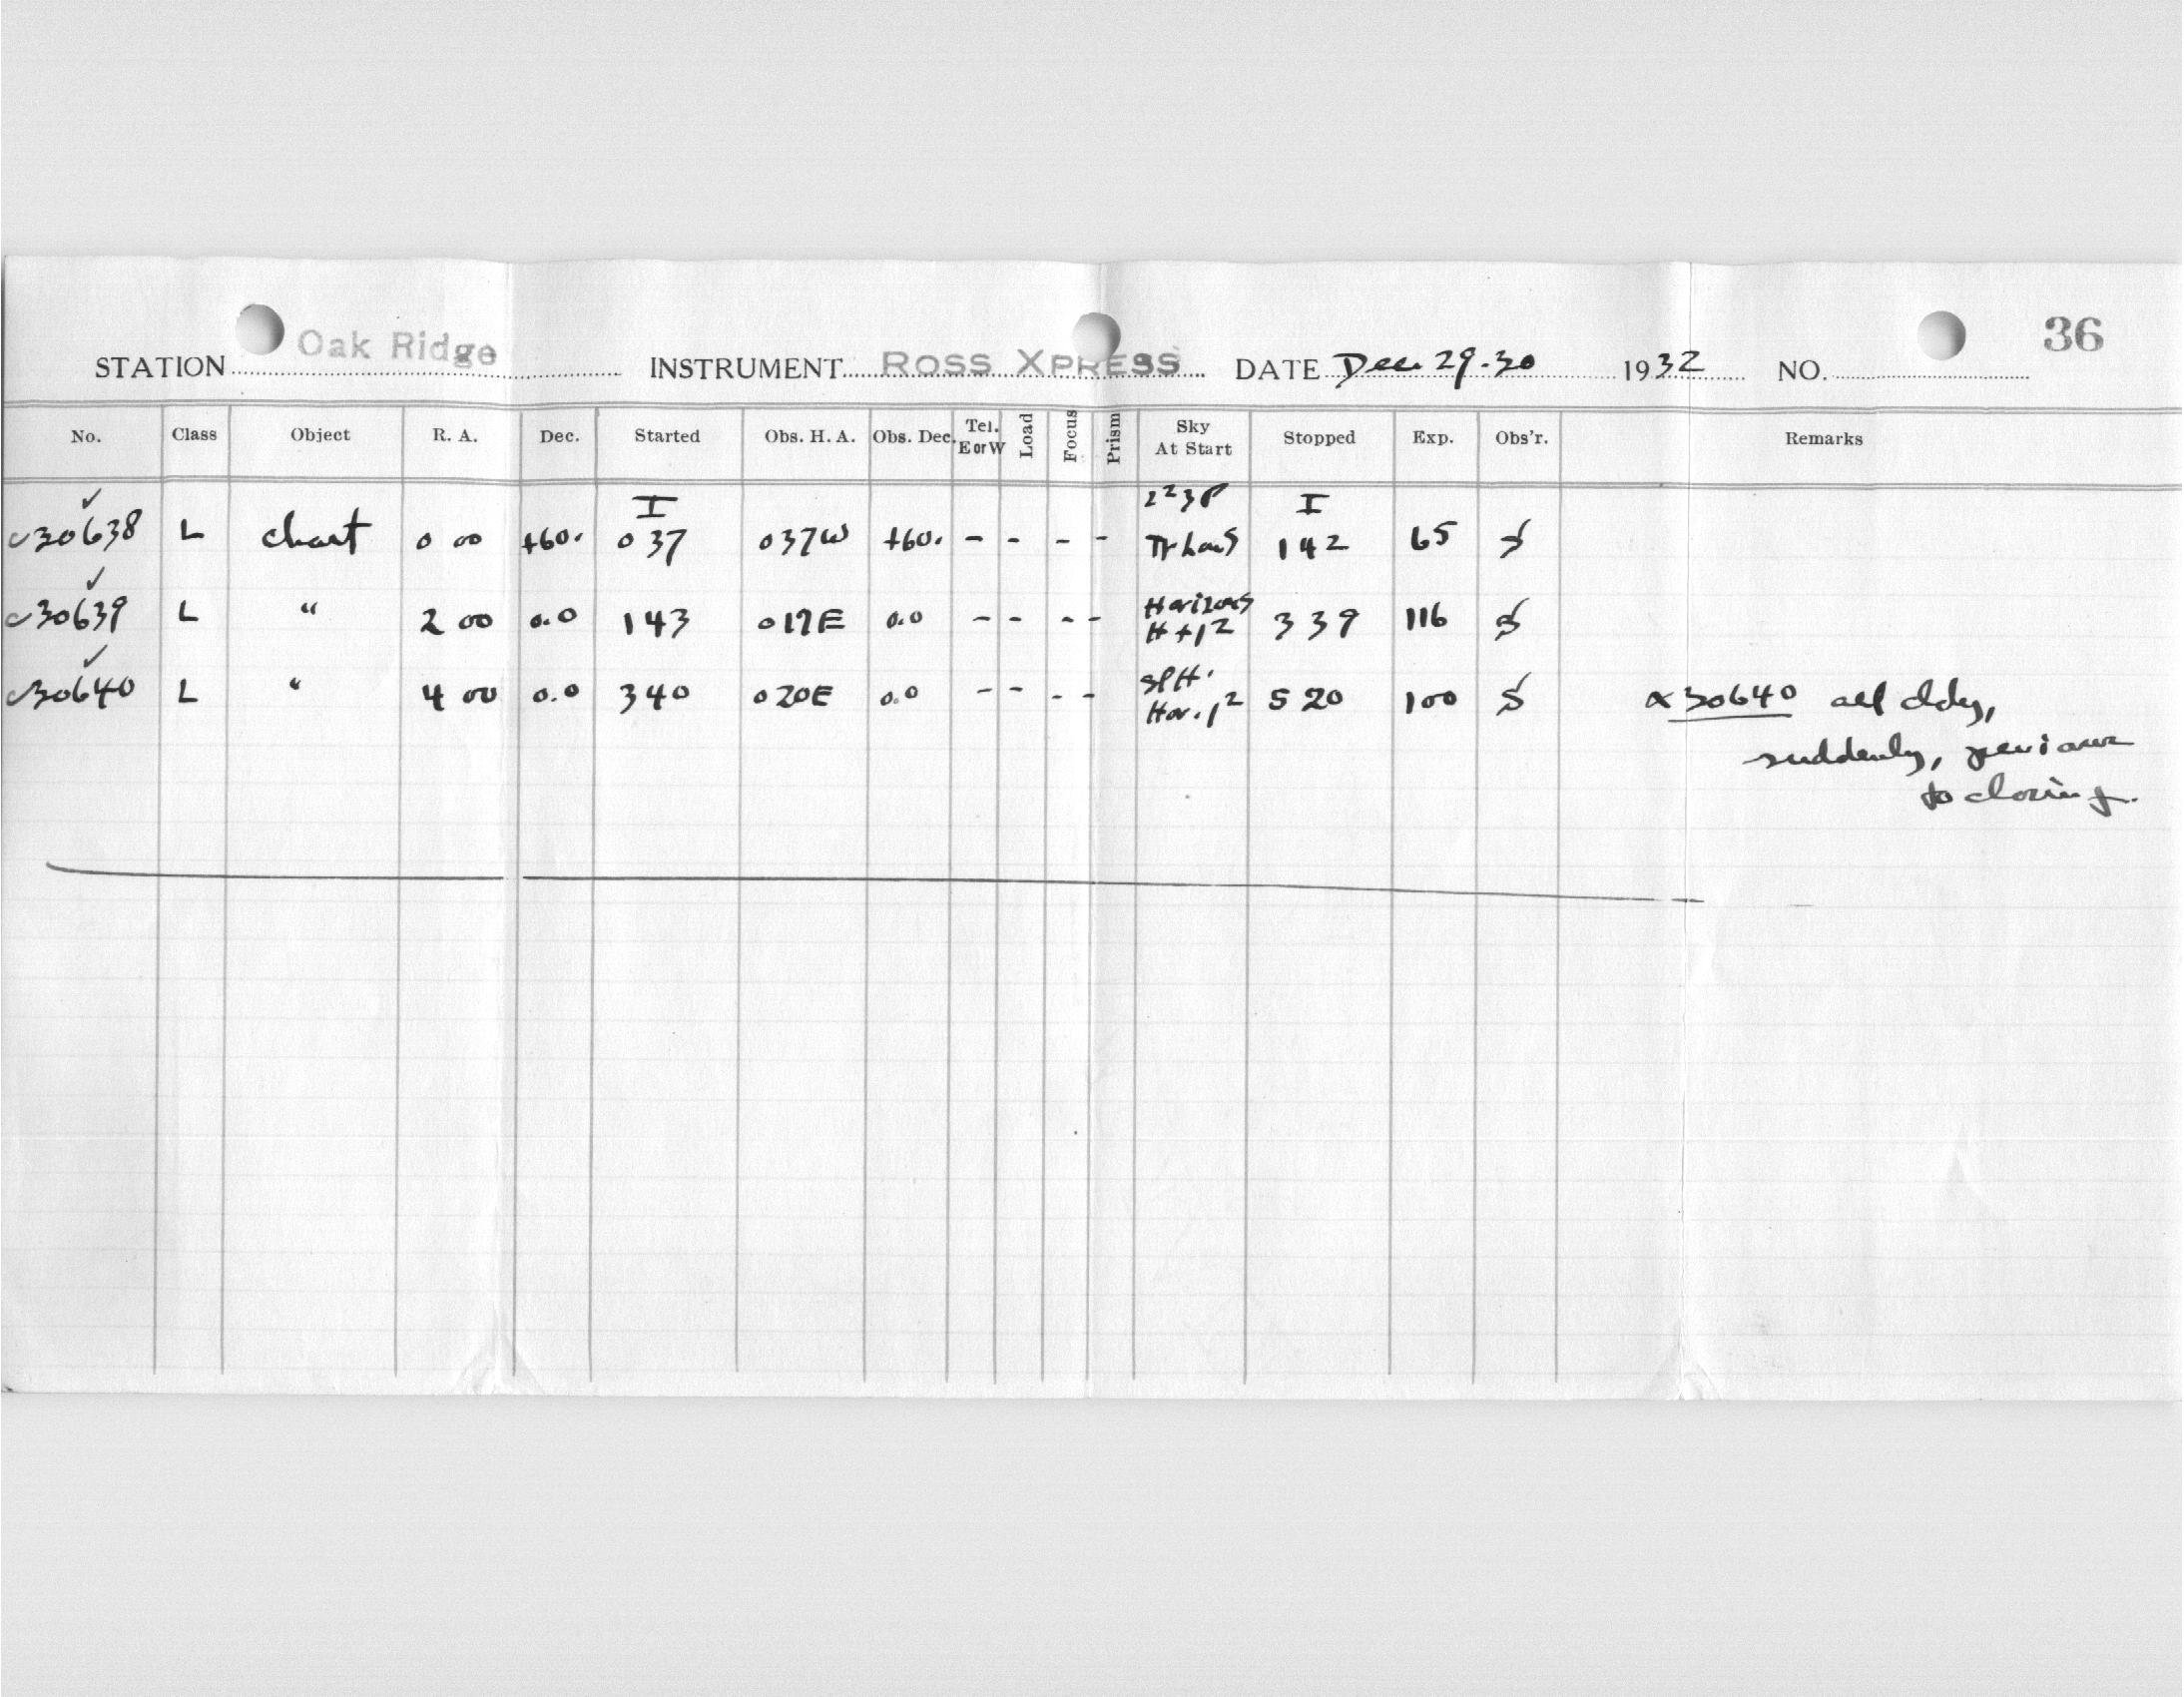 36
STATION Oak Ridge INSTRUMENT Ross Xpress DATE Dec. 29.30 1932 NO.
No. Class Object R. A. Dec. Started Obs. H. A. Obs. Dec. Tel. E or W Load Focus Prism Sky At Start Stopped Exp. Obs'r. Remarks
I I
30638 L chart 0 00 +60. 0 37 0 37W +60. - - - - 1 42 65 S
30639 L " 2 00 0.0 1 43 0 17E 0.0 - - - - Horizons H + 1² 3 39 116 S
30640 L " 4 00 0.0 3 40 0 20E 0.0 - - - - Spt. Hor. 1² 5 20 100 S 30640 all cldy,
suddenly, previous
to closing.